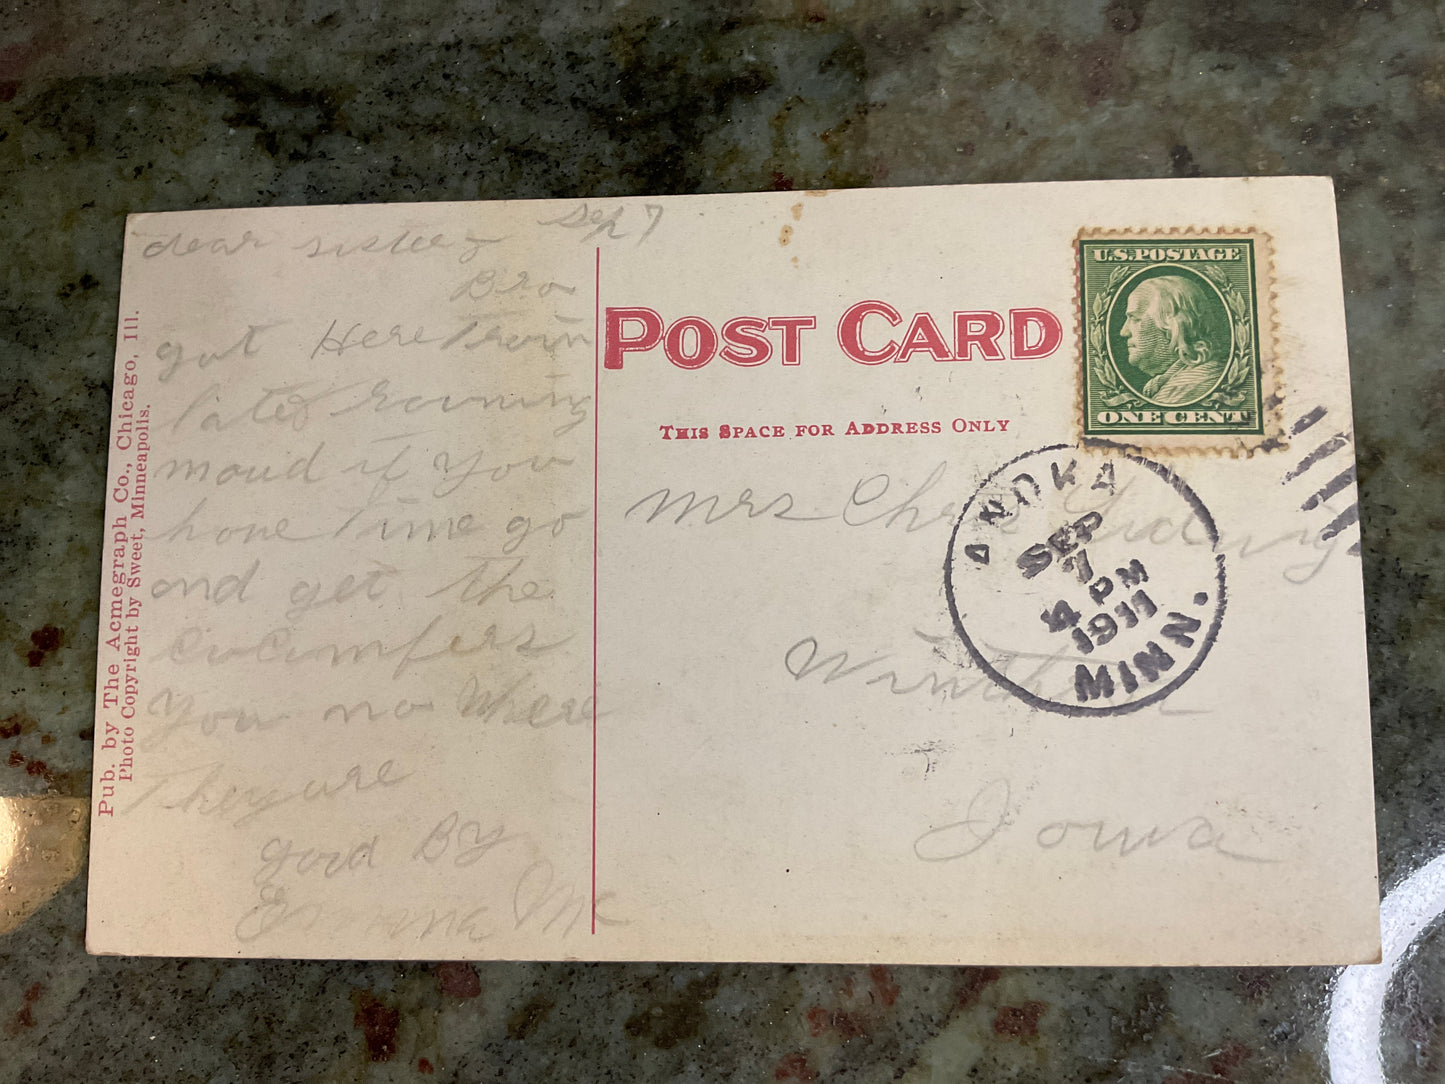 Sep 7
dear sister
Bro
got Here Train
lated
maud if you
have time go
and get the
cucumfers
you no Where
they are
good By
Emma Mc
Pub. by The Acmegraph Co., Chicago, Ill.
Photo Copyright by Sweet, Minneapolis.
POST CARD
THIS SPACE FOR ADDRESS ONLY
U.S. POSTAGE
ONE CENT
ANOKA
SEP
7
4 PM
1911
MINN.
Mrs Chris
Winthrop
Iowa